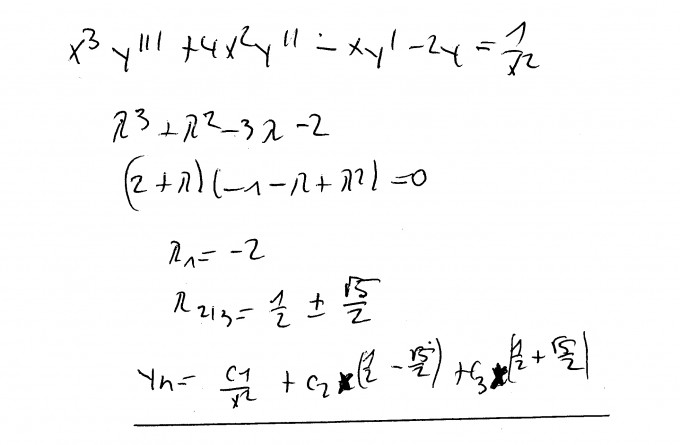 x³ y''' + 4x²y'' - xy' - 2y = 1/x²
λ³ + λ² - 3λ - 2
(2 + λ)(-1 - λ + λ²) = 0
λ₁ = -2
λ₂/₃ = 1/2 ± √5/2
yh = C1/x² + C₂ x^(1/2 - √5/2) + C₃ x^(1/2 + √5/2)